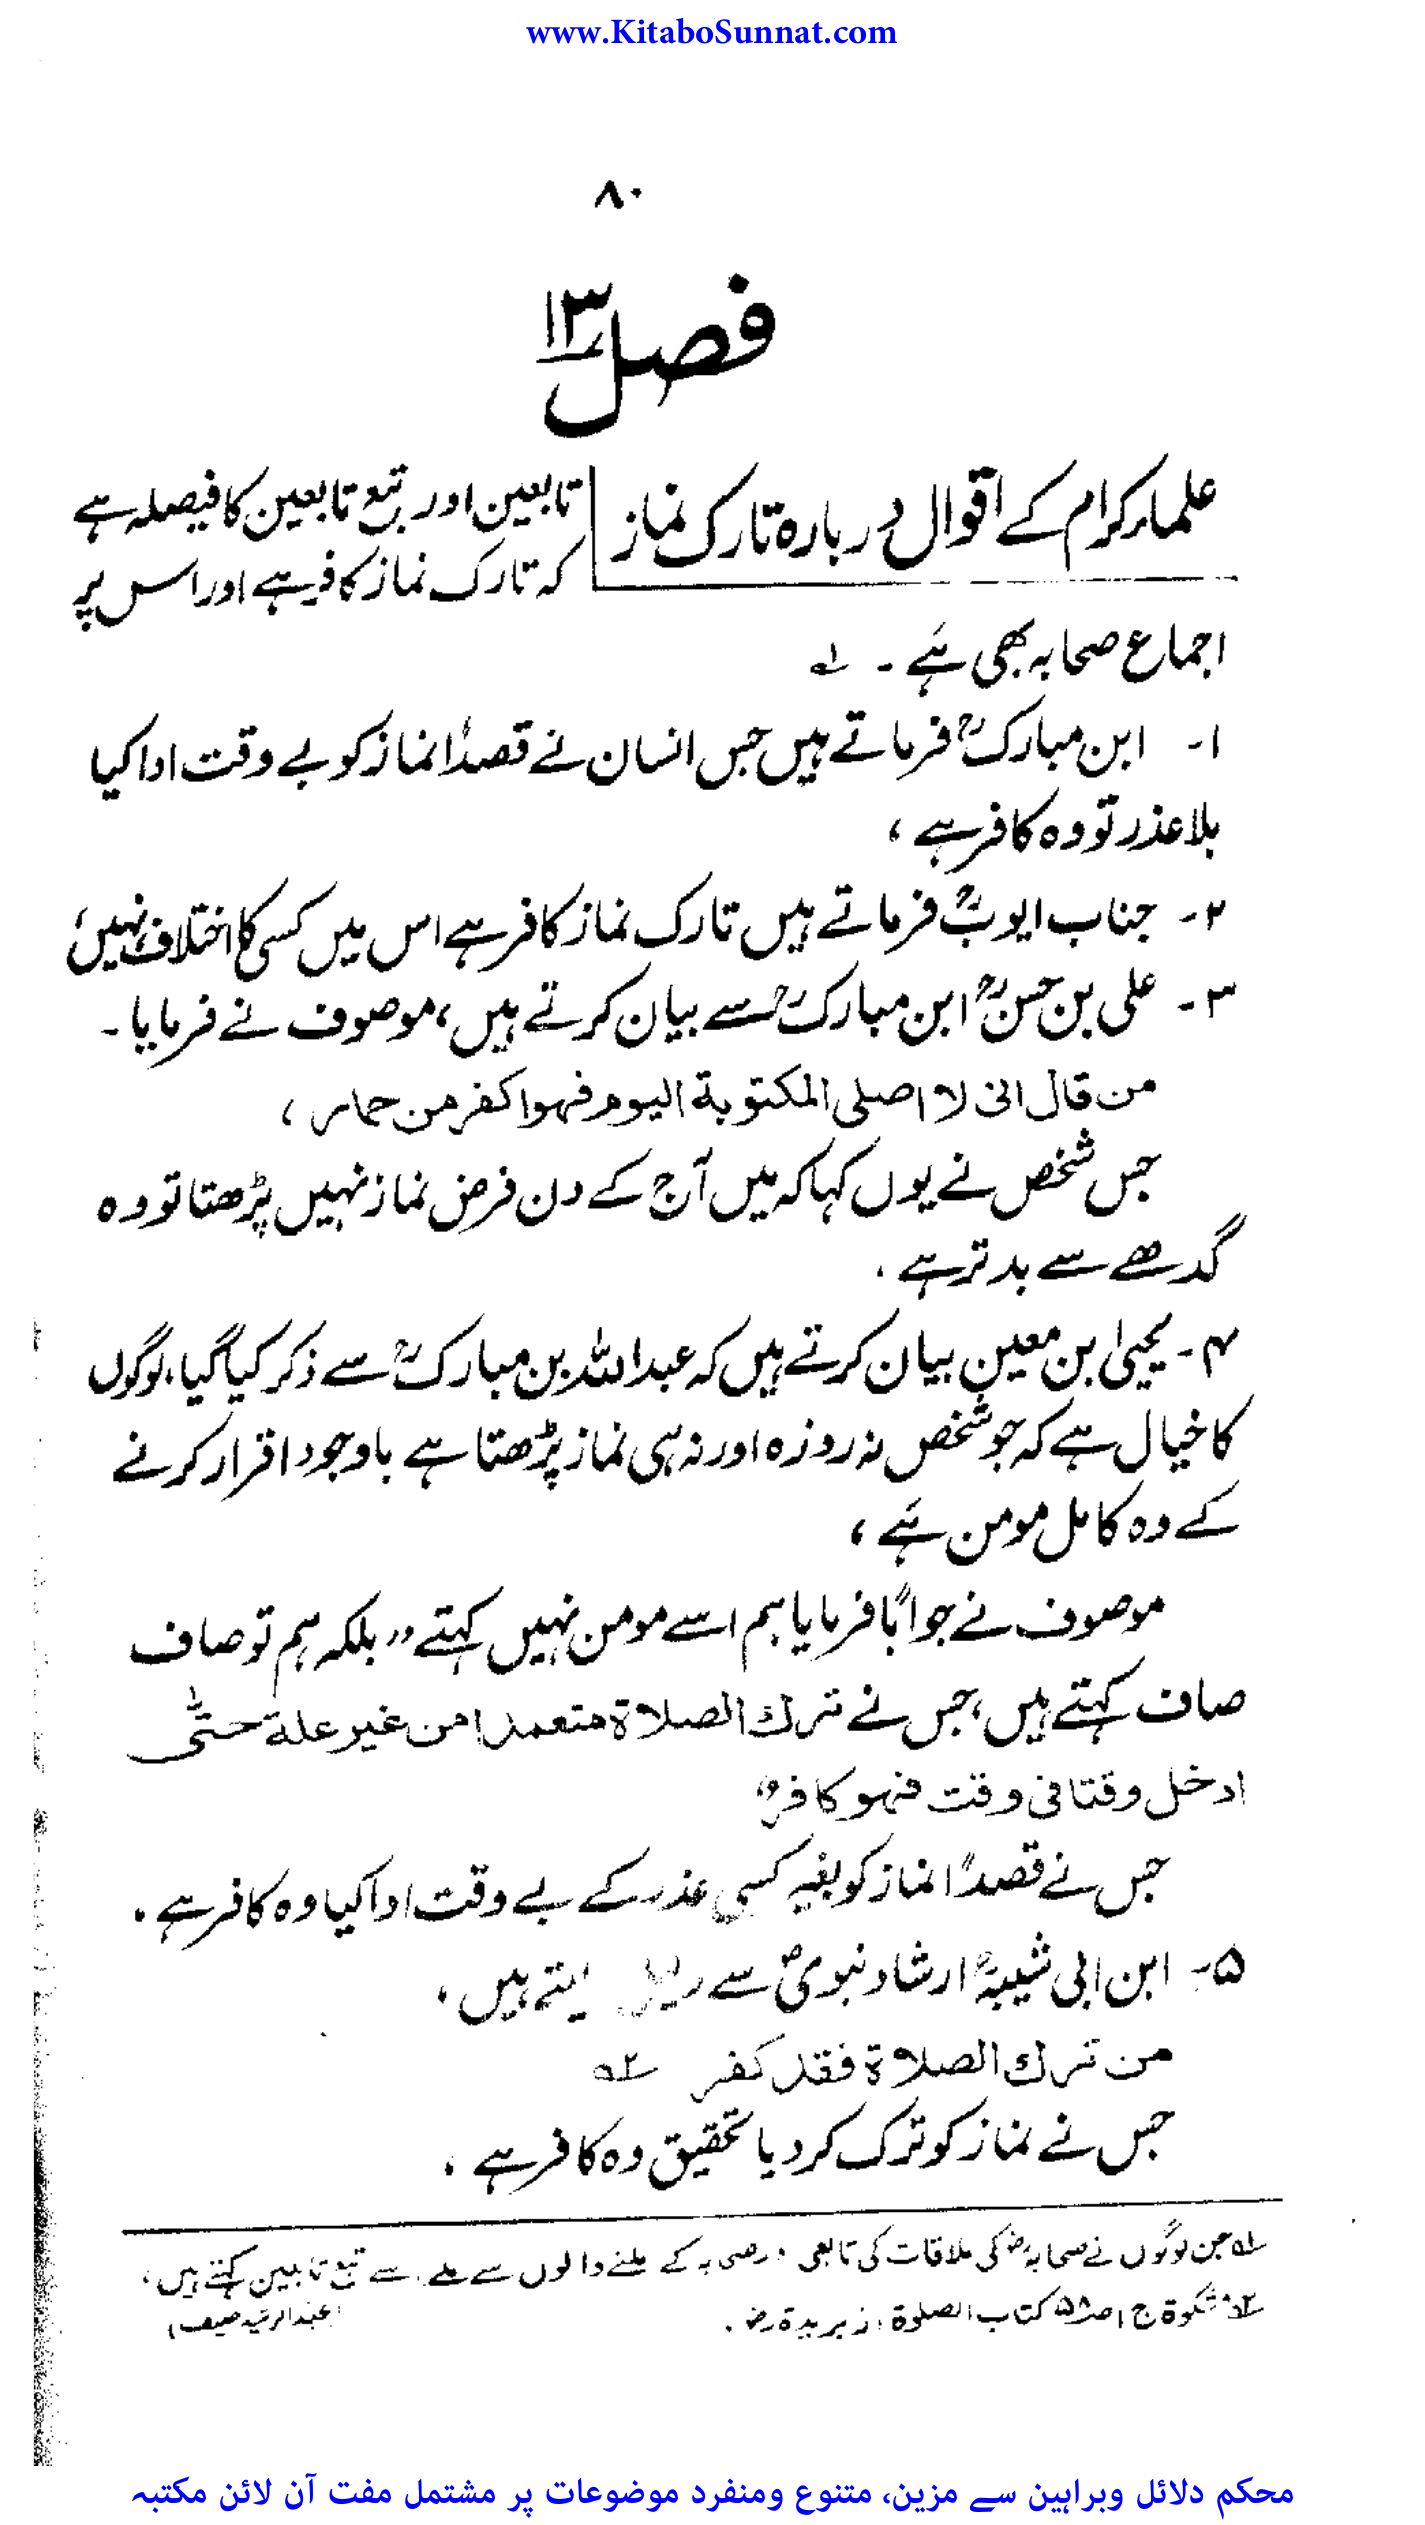 www.KitaboSunnat.com
۸۰
فصل ۱۳
علماء کرام کے اقوال دربارہ تارک نماز
تابعین اور تبع تابعین کا فیصلہ ہے
کہ تارک نماز کافر ہے اور اس پر
اجماع صحابہ بھی ہے ۔ ۱؎
۱۔ ابن مبارکؒ فرماتے ہیں جس انسان نے قصداً نماز کو بے وقت ادا کیا
بلا عذر تو وہ کافر ہے ،
۲۔ جناب ایوبؒ فرماتے ہیں تارک نماز کافر ہے اس میں کسی کا اختلاف نہیں ،
۳۔ علی بن حسنؒ ابن مبارکؒ سے بیان کرتے ہیں ، موصوف نے فرمایا ۔
من قال انی لا اصلی المکتوبة الیوم فهوا کفر من حمار ،
جس شخص نے یوں کہا کہ میں آج کے دن فرض نماز نہیں پڑھتا تو وہ
گدھے سے بدتر ہے ۔
۴۔ یحییٰ بن معین بیان کرتے ہیں کہ عبداللہ بن مبارکؒ سے ذکر کیا گیا ، لوگوں
کا خیال ہے کہ جو شخص نہ روزہ اور نہ ہی نماز پڑھتا ہے باوجود اقرار کرنے
کے وہ کامل مومن ہے ،
موصوف نے جواباً فرمایا ہم اسے مومن نہیں کہتے ،، بلکہ ہم تو صاف
صاف کہتے ہیں ، جس نے ترك الصلاة متعمدا من غیر علة حتّٰی
ادخل وقتا فی وقت فهو کافر ،،
جس نے قصداً نماز کو بغیر کسی عذر کے بے وقت ادا کیا وہ کافر ہے ۔
۵۔ ابن ابی شیبہؒ ارشاد نبویؐ سے دلیل لیتے ہیں ۔
من ترك الصلاة فقد کفر ۲؎
جس نے نماز کو ترک کر دیا تحقیق وہ کافر ہے ،
۱؎ جن لوگوں نے صحابہؓ کی ملاقات کی تابعی ، صحابہ کے ملنے والوں سے ملے سے تبع تابعین کہتے ہیں ،
۲؎ مشکوٰة ج ۱ ص ۵۸ کتاب الصلوٰة ، بریدة رض ۔
محکم دلائل وبراہین سے مزین، متنوع ومنفرد موضوعات پر مشتمل مفت آن لائن مکتبہ